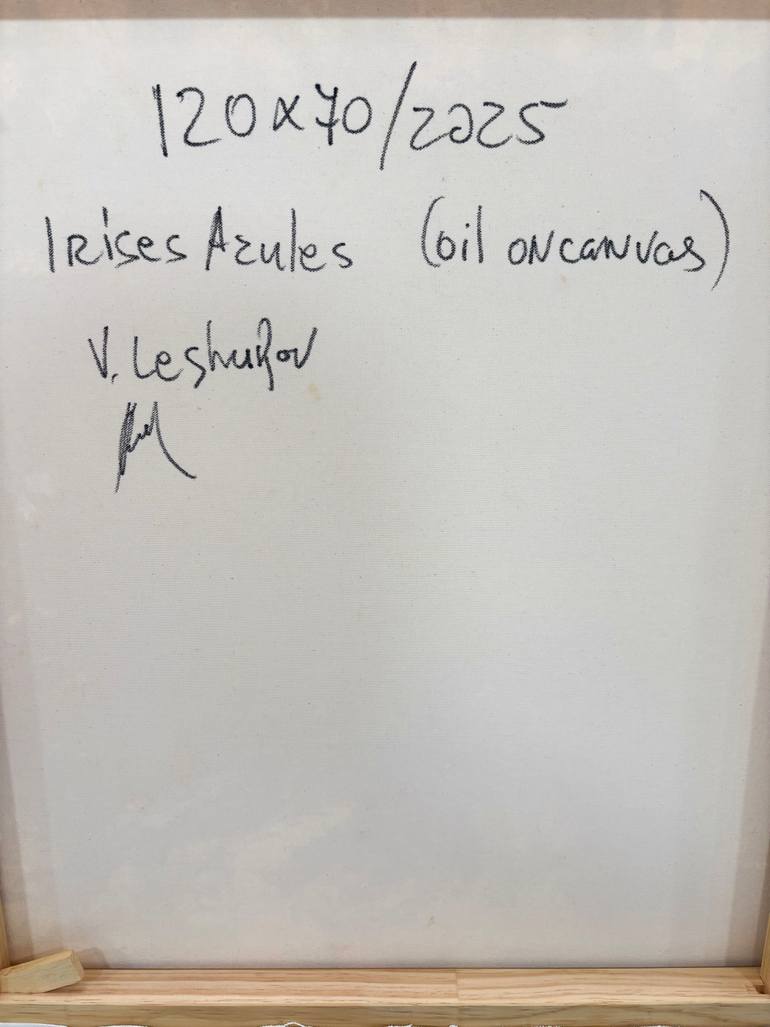 120x70/2025
Irises Azules (oil on canvas)
V. Leshukov